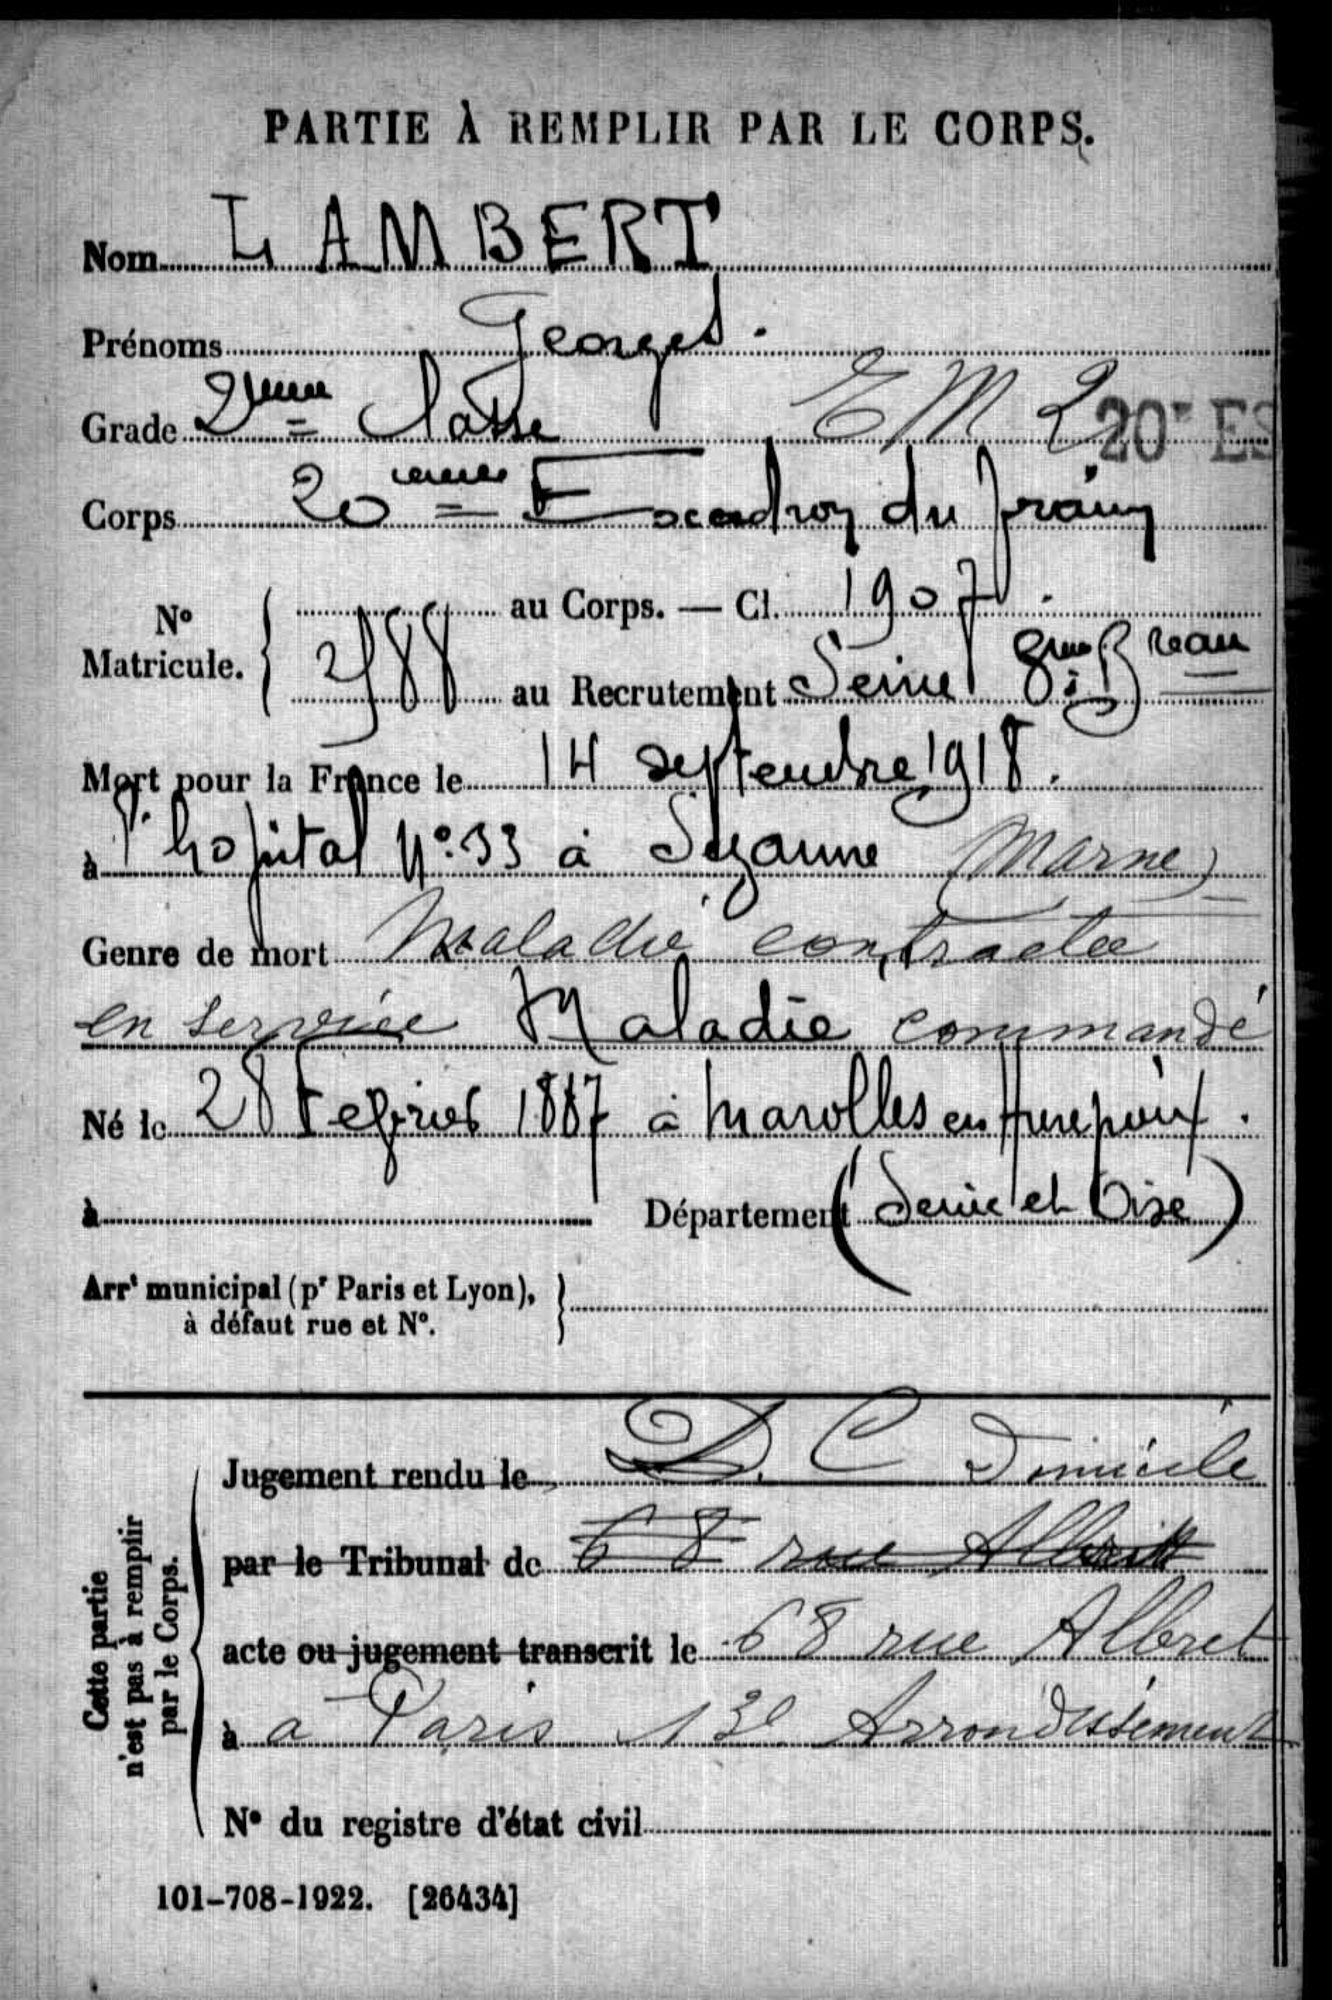 PARTIE À REMPLIR PAR LE CORPS.
Nom LAMBERT
Prénoms Georges.
Grade 2ème Classe EM 2 20E ES
Corps 20ème Escadron du Train
No Matricule. au Corps. — Cl. 1907.
2588 au Recrutement Seine 8ème Breau
Mort pour la France le 14 septembre 1918.
à l'hopital No. 33 à Sézanne (Marne)
Genre de mort Maladie contractée
en service Maladie commandé
Né le 28 Février 1887 à Marolles en Hurepoix.
à Département (Seine et Oise)
Arrt municipal (pr Paris et Lyon),
à défaut rue et No.
Cette partie
n'est pas à remplir
par le Corps.
Jugement rendu le D.C Domicile
par le Tribunal de 68 rue Albret
acte ou jugement transcrit le 68 rue Albret
à a Paris 13e Arrondissement
No du registre d'état civil
101-708-1922. [26434]